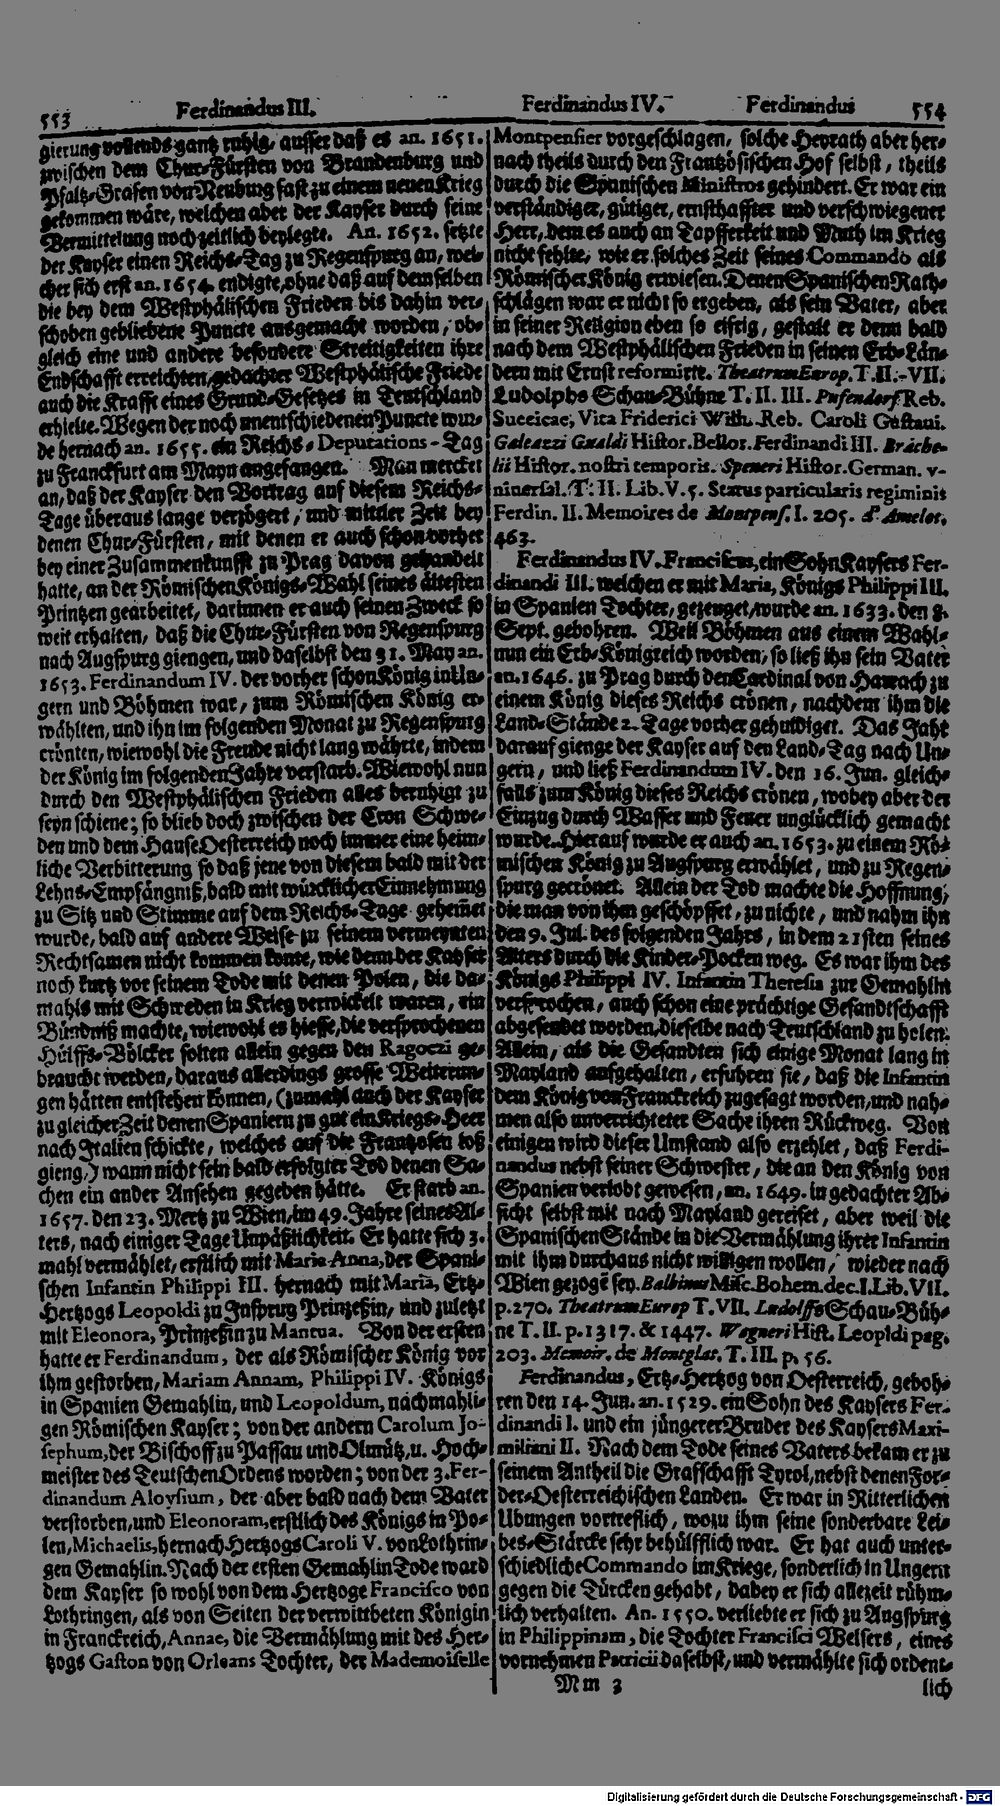 553 Ferdinandus III.
gierung vollends gantz ruhig, ausser daß es an. 1651.
zwischen dem Chur-Fürsten von Brandenburg und
Pfaltz-Grafen von Neuburg fast zu einem neuen Krieg
gekommen wäre, welchen aber der Kayser durch seine
Vermittelung noch zeitlich beylegte. An. 1652. setzte
der Kayser einen Reichs-Tag zu Regenspurg an, wel-
cher sich erst an. 1654. endigte, ohne daß auf demselben
die bey dem Westphälischen Frieden bis dahin ver-
schoben gebliebene Puncte ausgemacht worden, ob-
gleich eine und andere besondere Streitigkeiten ihre
Endschafft erreichten, gedachter Westphälische Friede
auch die Krafft eines Grund-Gesetzes in Teutschland
erhielte. Wegen der noch unentschiedenen Puncte wur-
de hernach an. 1655. ein Reichs-Deputations-Tag
zu Franckfurt am Mayn angefangen. Man mercket
an, daß der Kayser den Vortrag auf diesem Reichs-
Tage überaus lange verzögert, und mittler Zeit bey
denen Chur-Fürsten, mit denen er auch schon vorher
bey einer Zusammenkunfft zu Prag davon gehandelt
hatte, an der Römischen Königs-Wahl seines ältesten
Printzen gearbeitet, darinnen er auch seinen Zweck so
weit erhalten, daß die Chur-Fürsten von Regenspurg
nach Augspurg giengen, und daselbst den 31. May an.
1653. Ferdinandum IV. der vorher schon König in Un-
gern und Böhmen war, zum Römischen König er-
wählten, und ihn im folgenden Monat zu Regenspurg
crönten, wiewohl die Freude nicht lang währte, indem
der König im folgenden Jahre verstarb. Wiewohl nun
durch den Westphälischen Frieden alles beruhigt zu
seyn schiene; so blieb doch zwischen der Cron Schwe-
den und dem Hause Oesterreich noch immer eine heim-
liche Verbitterung so daß jene von diesem bald mit der
Lehns-Empfängniß, bald mit würcklicher Einnehmung
zu Sitz und Stimme auf dem Reichs-Tage gehem̃et
wurde, bald auf andere Weise zu seinem vermeynten
Rechtsamen nicht kommen konte, wie denn der Kayser
noch kurtz vor seinem Tode mit denen Polen, die da-
mahls mit Schweden in Krieg verwickelt waren, ein
Bündniß machte, wiewohl es hiesse, die versprochenen
Hülffs-Völcker solten allein gegen den Ragoczi ge-
braucht werden, daraus allerdings grosse Weiterun-
gen hätten entstehen können, (zumahl auch der Kayser
zu gleicher Zeit denen Spaniern zu gut ein Kriegs-Heer
nach Italien schickte, welches auf die Frantzosen loß
gieng,) wann nicht sein bald erfolgter Tod denen Sa-
chen ein ander Ansehen gegeben hätte. Er starb an.
1657. den 23. Mertz zu Wien, im 49. Jahre seines Al-
ters, nach einiger Tage Unpäßlichkeit. Er hatte sich 3.
mahl vermählet, erstlich mit Maria Anna, der Spani-
schen Infantin Philippi III. hernach mit Maria, Ertz-
Hertzogs Leopoldi zu Insprug Printzeßin, und zuletzt
mit Eleonora, Printzeßin zu Mantua. Von der ersten
hatte er Ferdinandum, der als Römischer König vor
ihm gestorben, Mariam Annam, Philippi IV. Königs
in Spanien Gemahlin, und Leopoldum, nachmahli-
gen Römischen Kayser; von der andern Carolum Jo-
sephum, der Bischoff zu Passau und Olmütz, u. Hoch-
meister des Teutschen Ordens worden; von der 3. Fer-
dinandum Aloysium, der aber bald nach dem Vater
verstorben, und Eleonoram, erstlich des Königs in Po-
len, Michaelis, hernach Hertzogs Caroli V. von Lothrin-
gen Gemahlin. Nach der ersten Gemahlin Tode ward
dem Kayser so wohl von dem Hertzoge Francisco von
Lothringen, als von Seiten der verwittbeten Königin
in Franckreich, Annae, die Vermählung mit des Her-
tzogs Gaston von Orleans Tochter, der Mademoiselle
Ferdinandus IV. Ferdinandus 554
Montpensier vorgeschlagen, solche Heyrath aber her-
nach theils durch den Frantzösischen Hof selbst, theils
durch die Spanischen Ministros gehindert. Er war ein
verständiger, gütiger, ernsthaffter und verschwiegener
Herr, dem es auch an Tapfferkeit und Muth im Krieg
nicht fehlte, wie er solches Zeit seines Commando als
Römischer König erwiesen. Denen Spanischen Rath-
schlägen war er nicht so ergeben, als sein Vater, aber
in seiner Religion eben so eifrig, gestalt er denn bald
nach dem Westphälischen Frieden in seinen Erb-Län-
dern mit Ernst reformirte. Theatrum Europ. T. II.-VII.
Ludolphs Schau-Bühne T. II. III. Pufendorf Reb.
Suecicae, Vita Friderici Wilh. Reb. Caroli Gustavi.
Galeazzi Gualdi Histor. Bellor. Ferdinandi III. Brache-
lii Histor. nostri temporis. Speneri Histor. German. v-
niversal. T. II. Lib. V. 5. Status particularis regiminis
Ferdin. II. Memoires de Montpens. I. 205. P. Amelot.
463.
Ferdinandus IV. Franciscus, ein Sohn Kaysers Fer-
dinandi III. welchen er mit Maria, Königs Philippi III.
in Spanien Tochter, gezeuget, wurde an. 1633. den 8.
Sept. gebohren. Weil Böhmen aus einem Wahl-
nun ein Erb-Königreich worden, so ließ ihn sein Vater
an. 1646. zu Prag durch den Cardinal von Harrach zu
einem König dieses Reichs crönen, nachdem ihm die
Land-Stände 2. Tage vorher gehuldiget. Das Jahr
darauf gienge der Kayser auf den Land-Tag nach Un-
gern, und ließ Ferdinandum IV. den 16. Jun. gleich-
falls zum König dieses Reichs crönen, wobey aber der
Einzug durch Wasser und Feuer unglücklich gemacht
wurde. Hierauf wurde er auch an. 1653. zu einem Rö-
mischen König zu Augspurg erwählet, und zu Regen-
spurg gecrönet. Allein der Tod machte die Hoffnung,
die man von ihm geschöpffet, zu nichte, und nahm ihn
den 9. Jul. des folgenden Jahrs, in dem 21sten seines
Alters durch die Kinder-Pocken weg. Es war ihm des
Königs Philippi IV. Infantin Theresia zur Gemahlin
versprochen, auch schon eine prächtige Gesandtschafft
abgesendet worden, dieselbe nach Teutschland zu holen.
Allein, als die Gesandten sich einige Monat lang in
Mayland aufgehalten, erfuhren sie, daß die Infantin
dem König von Franckreich zugesagt worden, und nah-
men also unverrichteter Sache ihren Rückweg. Von
einigen wird dieser Umstand also erzehlet, daß Ferdi-
nandus nebst seiner Schwester, die an den König von
Spanien verlobt gewesen, an. 1649. in gedachter Ab-
sicht selbst mit nach Mayland gereiset, aber weil die
Spanischen Stände in die Vermählung ihrer Infantin
mit ihm durchaus nicht willigen wollen, wieder nach
Wien gezogē sey. Balbinus Misc. Bohem. dec. I. Lib. VII.
p. 270. Theatrum Europ T. VII. Ludolffs Schau-Büh-
ne T. II. p. 1317. & 1447. Wagneri Hist. Leopldi pag.
203. Memoir. de Montglat. T. III. p. 56.
Ferdinandus, Ertz-Hertzog von Oesterreich, geboh-
ren den 14. Jun. an. 1529. ein Sohn des Kaysers Fer-
dinandi I. und ein jüngerer Bruder des Kaysers Maxi-
miliani II. Nach dem Tode seines Vaters bekam er zu
seinem Antheil die Grafschafft Tyrol, nebst denen For-
der-Oesterreichischen Landen. Er war in Ritterlichen
Ubungen vortreflich, wozu ihm seine sonderbare Lei-
bes-Stärcke sehr behülfflich war. Er hat auch unter-
schiedliche Commando im Kriege, sonderlich in Ungern
gegen die Türcken gehabt, dabey er sich allezeit rühm-
lich verhalten. An. 1550. verliebte er sich zu Augspurg
in Philippinam, die Tochter Francisci Welsers, eines
vornehmen Patricii daselbst, und vermählte sich ordent-
Mm 3 lich
Digitalisierung gefördert durch die Deutsche Forschungsgemeinschaft - DFG